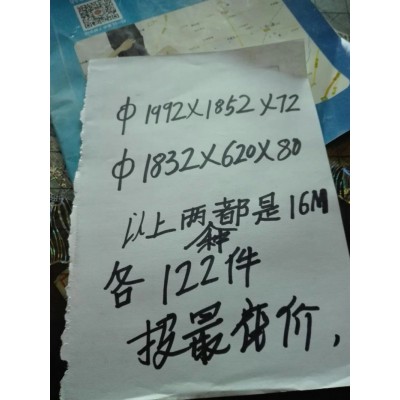 Φ1992X1852X72
Φ1832X620X80
以上两种都是16M
各122件
报最低价,